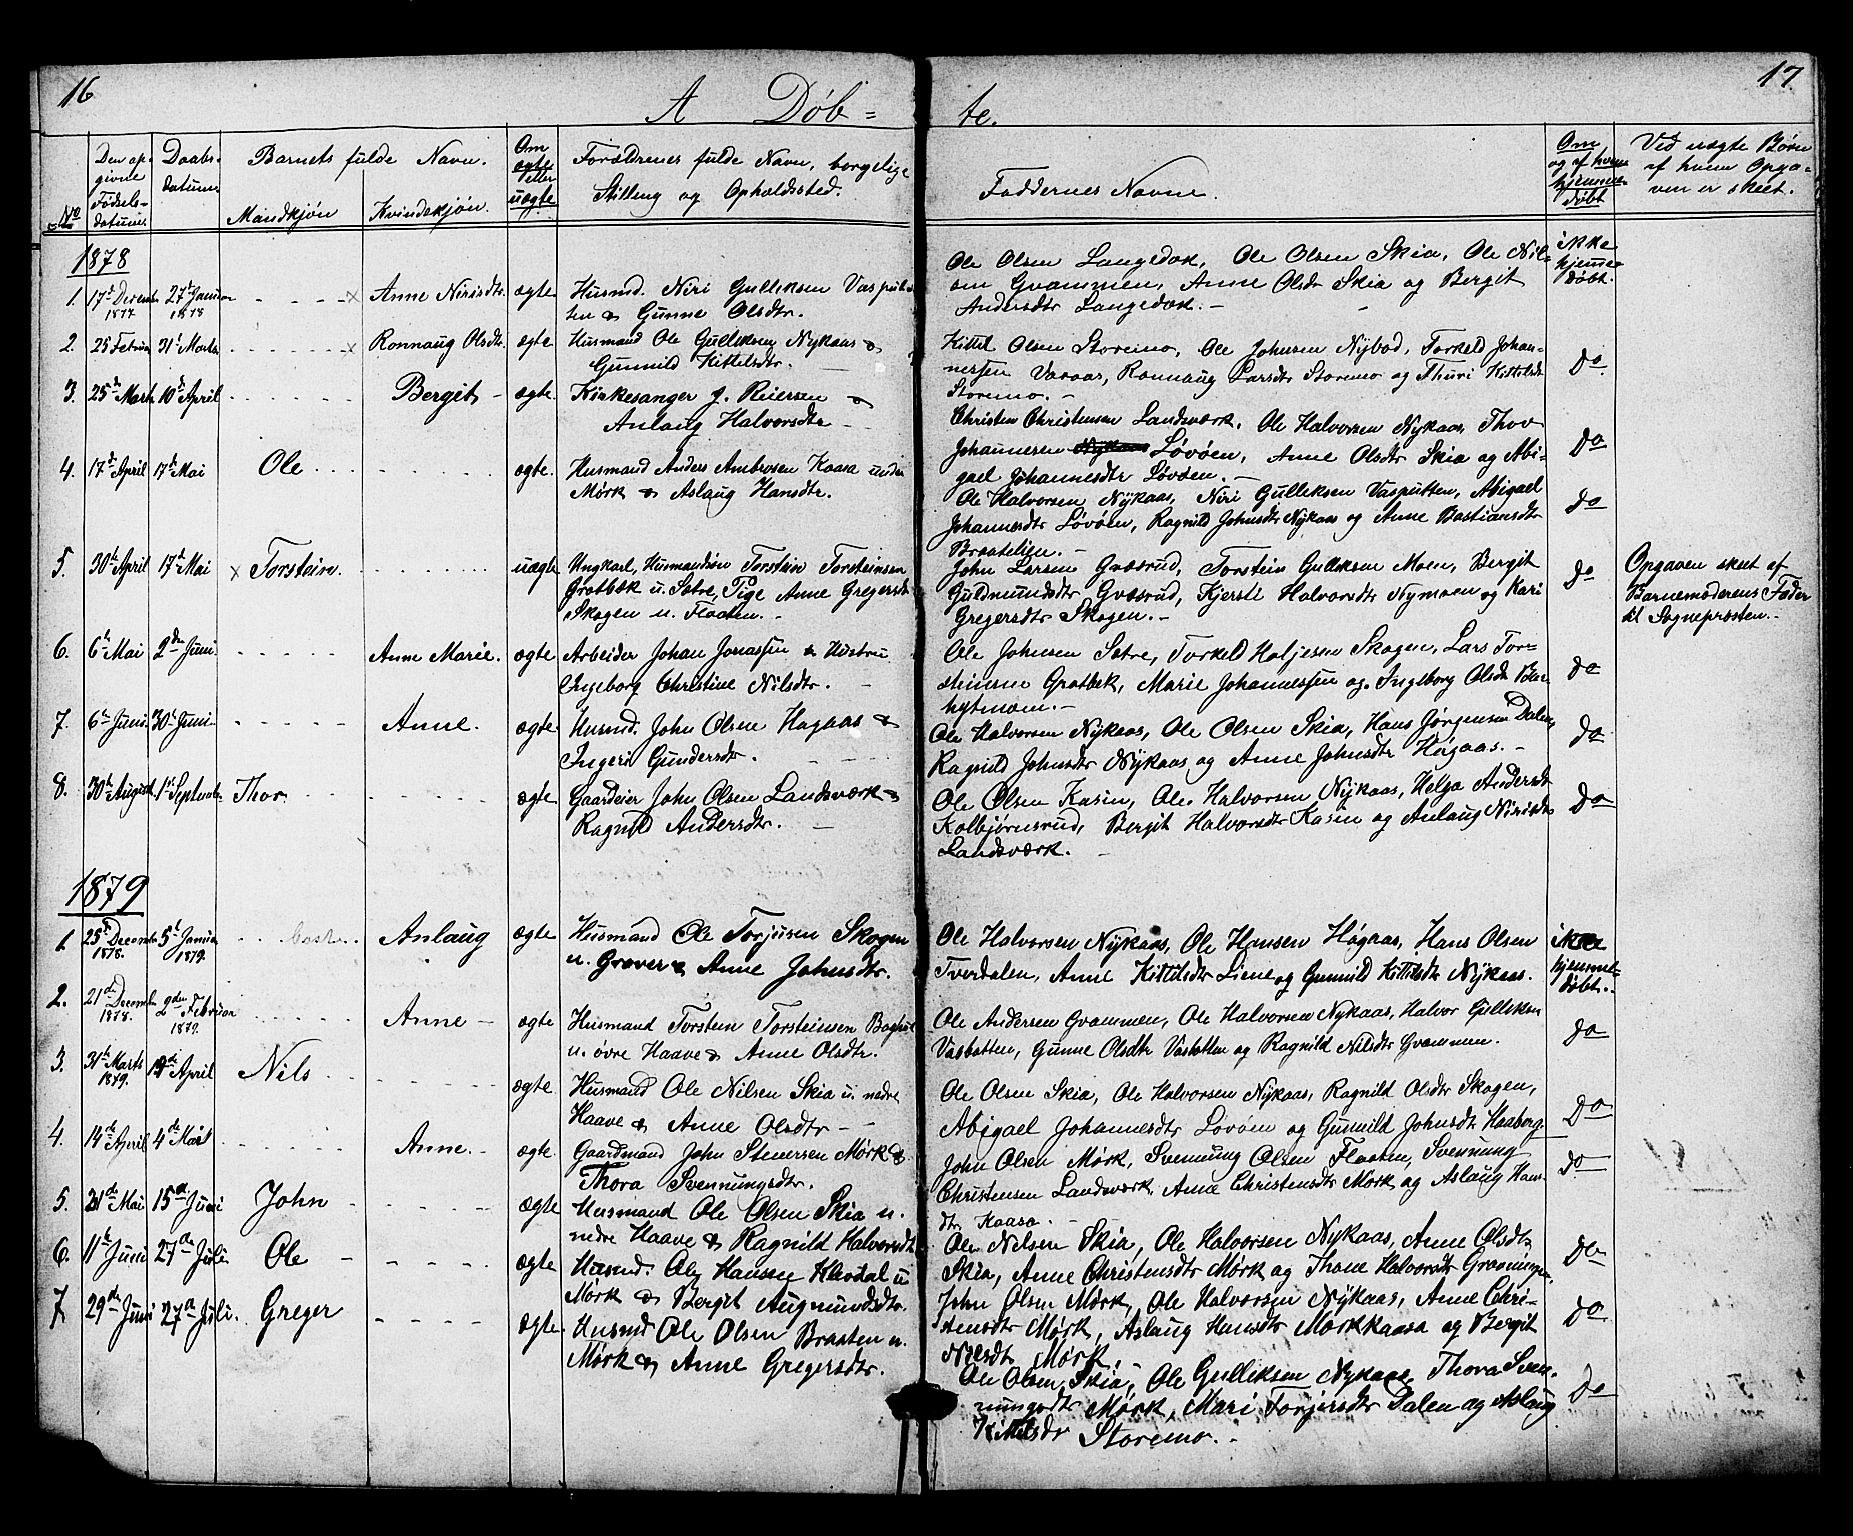 16
17
A Døb=
te.
No
Den op-
givne
Fødsels-
datum.
Daabs-
datum.
Barnets fulde Navn.
Mandkjøn
Kvindekjøn.
Om
ægte
eller
uægte
Forældrenes fulde Navn, borgelige
Stilling og Opholdssted.
Faddernes Navne.
Om
og af hvem
hjemme-
døbt
Ved uægte Børn
af hvem Opga-
ven er skeet.
1878
1. 17de Decemb 1877. 27de Januar 1878 Anne Nirisdtr. ægte
Husmd. Niri Gulliksen Vasputten
& Gunne Olsdtr.
Ole Olsen Langedok, Ole Olsen Skia, Ole Nil-
sen Gvammen, Anne Olsdtr Skia og Bergit
Andersdtr Langedok.
ikke
hjemme
døbt.
2. 28 Februar 31 Marts Ronnaug Olsdtr. ægte
Husmand Ole Gulliksen Nykaas &
Gunnild Kittelsdtr.
Kittel Olsen Storemo, Ole Johnsen Nybød, Torkeld Johan-
nessen Varaas, Ronnaug Larsdtr Storemo og Thuri Kittelsdtr
Storemo.
do
3. 25de Marts 10de April Bergit ægte
Kirkesanger J. Reiersen &
Anlaug Halvorsdtr
Christen Christensen Landsværk, Ole Halvorsen Nykaas, Thov
Johannesen Løvøen, Anne Olsdtr Skia og Abi-
gael Johannesdtr Løvøen.
do
4. 17de April 17de Mai Ole ægte.
Husmand Anders Ambrosen Kaasa under
Mørk & Aslaug Hansdtr.
Ole Halvorsen Nykaas, Niri Gulliksen Vasputten, Abigael
Johannesdtr Løvøen, Ragnild Johnsdtr Nykaas og Anne Bastiansdtr
Braatelien.
do
5. 30te April 17de Mai Torstein. uægte
Ungkarl, Husmandsøn Torstein Torsteinsen
Grøtbæk u. Sætre, Pige Anne Gregersdtr
Skogen u. Flaaten.
John Larsen Gvæsrud, Torstein Gulliksen Moen, Bergit
Guldmundsdtr Gvæsrud, Kjersti Halvorsdtr Nymoen og Kari
Gregersdtr Skogen.
do
Opgaven skeet af
Barnemoderens Fader
til Sognepræsten.
6. 6te Mai 2den Juni Anne Marie. ægte
Arbeider Johan Jonassen & Hustru
Ingeborg Christine Nilsdtr.
Ole Johnsen Sætre, Torkeld Haljesen Skogen, Lars Tor-
steinsen Grøtbek, Marie Johannessen og Ingeborg Olsdtr
do
7. 6te Juni 30te Juni Anne. ægte
Husmd. John Olsen Høgaas &
Ingeri Gundersdtr.
Ole Halvorsen Nykaas, Ole Olsen Skia, Hans Jørgensen Dalen,
Ragnild Johnsdtr Nykaas og Anne Johnsdtr Høigaas.
do
8. 30te August 1ste Septemb. Thor. ægte
Gaardeier John Olsen Landsværk &
Ragnild Andersdtr.
Ole Olsen Kasin, Ole Halvorsen Nykaas, Helga Andersdtr
Kolbjørnsrud, Bergit Halvorsdtr Kasin og Anlaug Nirisdtr
Landsværk.
do
1879
1. 25de Decemb 1878. 5te Januar 1879. Anlaug ægte
Husmand Ole Torjusen Skogen
u. Graver & Anne Johnsdtr.
Ole Halvorsen Nykaas, Ole Hansen Høgaas, Hans Olsen
Tverdalen, Anne Kittilsdtr Liene og Gunnild Kittilsdtr Nykaas.
ikke
hjemme-
døbt.
2. 21de Decemb 1878. 2den Februar 1879. Anne ægte
Husmand Torsten Torsteinsen
u. øvre Haave & Anne Olsdtr.
Ole Andersen Gvammen, Ole Halvorsen Nykaas, Halvor Gulliksen
Vasbotten, Gunne Olsdtr Vasbotten og Ragnild Nilsdtr Gvammen.
do
3. 31te Marts 1879. April Nils ægte
Husmand Ole Nilsen Skia u. nedre
Haave & Anne Olsdtr
Ole Olsen Skia, Ole Halvorsen Nykaas, Ragnild Olsdtr Skogen,
Abigael Johannesdtr Løvøen og Gunnild Johnsdtr Haaberg.
do
4. 14de April 4de Mai Anne. ægte.
Gaardmand John Stenersen Mørk &
Thora Svennungsdtr.
John Olsen Mørk, Svennung Olsen Flaaten, Svennung
Christensen Landsværk, Anne Christensdtr Mørk og Aslaug Hans-
dtr Kaasa.
do
5. 31de Mai 15de Juni John ægte
Husmand Ole Olsen Skia u.
nedre Haave & Ragnild Halvorsdtr
Ole Nielsen Skia, Ole Halvorsen Nykaas, Anne Olsdtr
Skia, Anne Christensdtr Mørk og Thone Halvorsdtr
do
6. 11te Juni 27de Juli Ole ægte
Husmd. Ole Hansen Klevdal u
Mørk & Bergit Augmundsdtr.
John Olsen Mørk, Ole Halvorsen Nykaas, Anne Chri-
stensdtr Mørk, Aslaug Hansdtr Mørkkaasa og Bergit
Nilsdtr Mørk.
do
7. 29de Juni 27de Juli. Greger ægte
Husmd Ole Olsen Braaten u.
Mørk & Anne Gregersdtr.
Ole Olsen Skia, Ole Gulliksen Nykaas, Thora Sven-
nungsdtr Mørk, Mari Torjersdtr Dalen og Aslaug
Kittilsdtr Storemo.
do